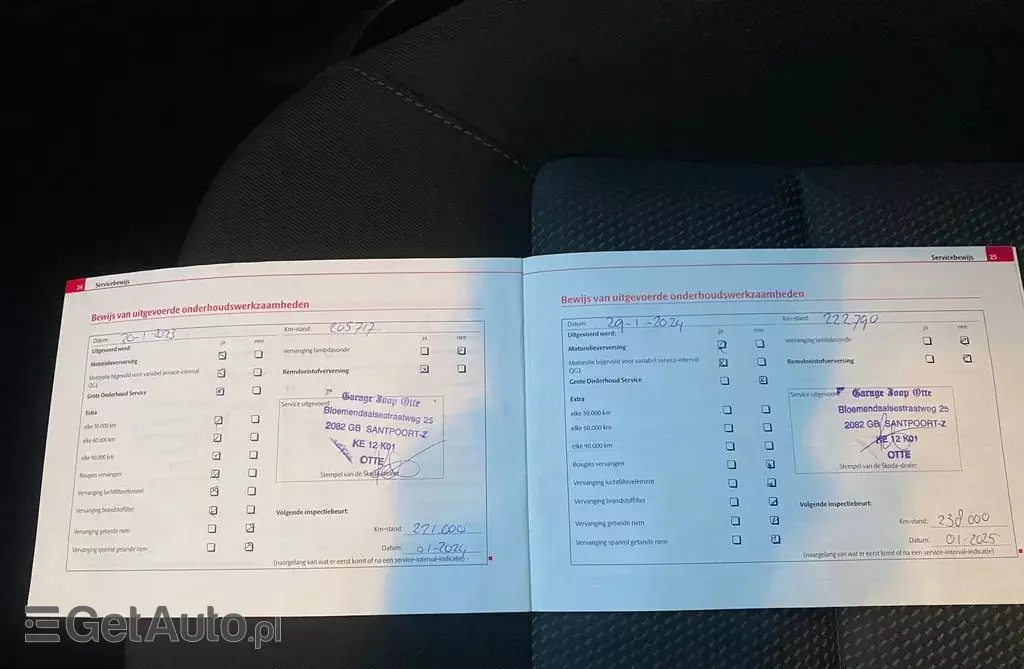 24 Servicebewijs
Bewijs van uitgevoerde onderhoudswerkzaamheden
Datum: 20-1-2023 Km-stand: 205717
Uitgevoerd werd: ja nee ja nee
Motorolieverversing
Vervanging lambdasonde
Motorolie bijgevuld voor variabel service-interval
QG1
Remvloeistofverversing
Grote Onderhoud Service
Extra
elke 30.000 km
elke 60.000 km
elke 90.000 km
Bougies vervangen
Vervanging luchtfilterelement
Vervanging brandstoffilter
Vervanging getande riem
Vervanging spanrol getande riem
Service uitgevoerd
Garage Joop Otte
Bloemendaalsestraatweg 25
2082 GB SANTPOORT-Z
KE 12 K01
OTTE
Stempel van de Skoda-dealer
Volgende inspectiebeurt:
Km-stand: 221.000
Datum: 01-2024
(naargelang van wat er eerst komt of na een service-interval-indicatie)
Servicebewijs 25
Bewijs van uitgevoerde onderhoudswerkzaamheden
Datum: 29-1-2024 Km-stand: 222.790
Uitgevoerd werd: ja nee ja nee
Motorolieverversing
Vervanging lambdasonde
Motorolie bijgevuld voor variabel service-interval
QG1
Remvloeistofverversing
Grote Onderhoud Service
Extra
elke 30.000 km
elke 60.000 km
elke 90.000 km
Bougies vervangen
Vervanging luchtfilterelement
Vervanging brandstoffilter
Vervanging getande riem
Vervanging spanrol getande riem
Service uitgevoerd
Garage Joop Otte
Bloemendaalsestraatweg 25
2082 GB SANTPOORT-Z
KE 12 K01
OTTE
Stempel van de Skoda-dealer
Volgende inspectiebeurt:
Km-stand: 238000
Datum: 01-2025
(naargelang van wat er eerst komt of na een service-interval-indicatie)
GetAuto.pl